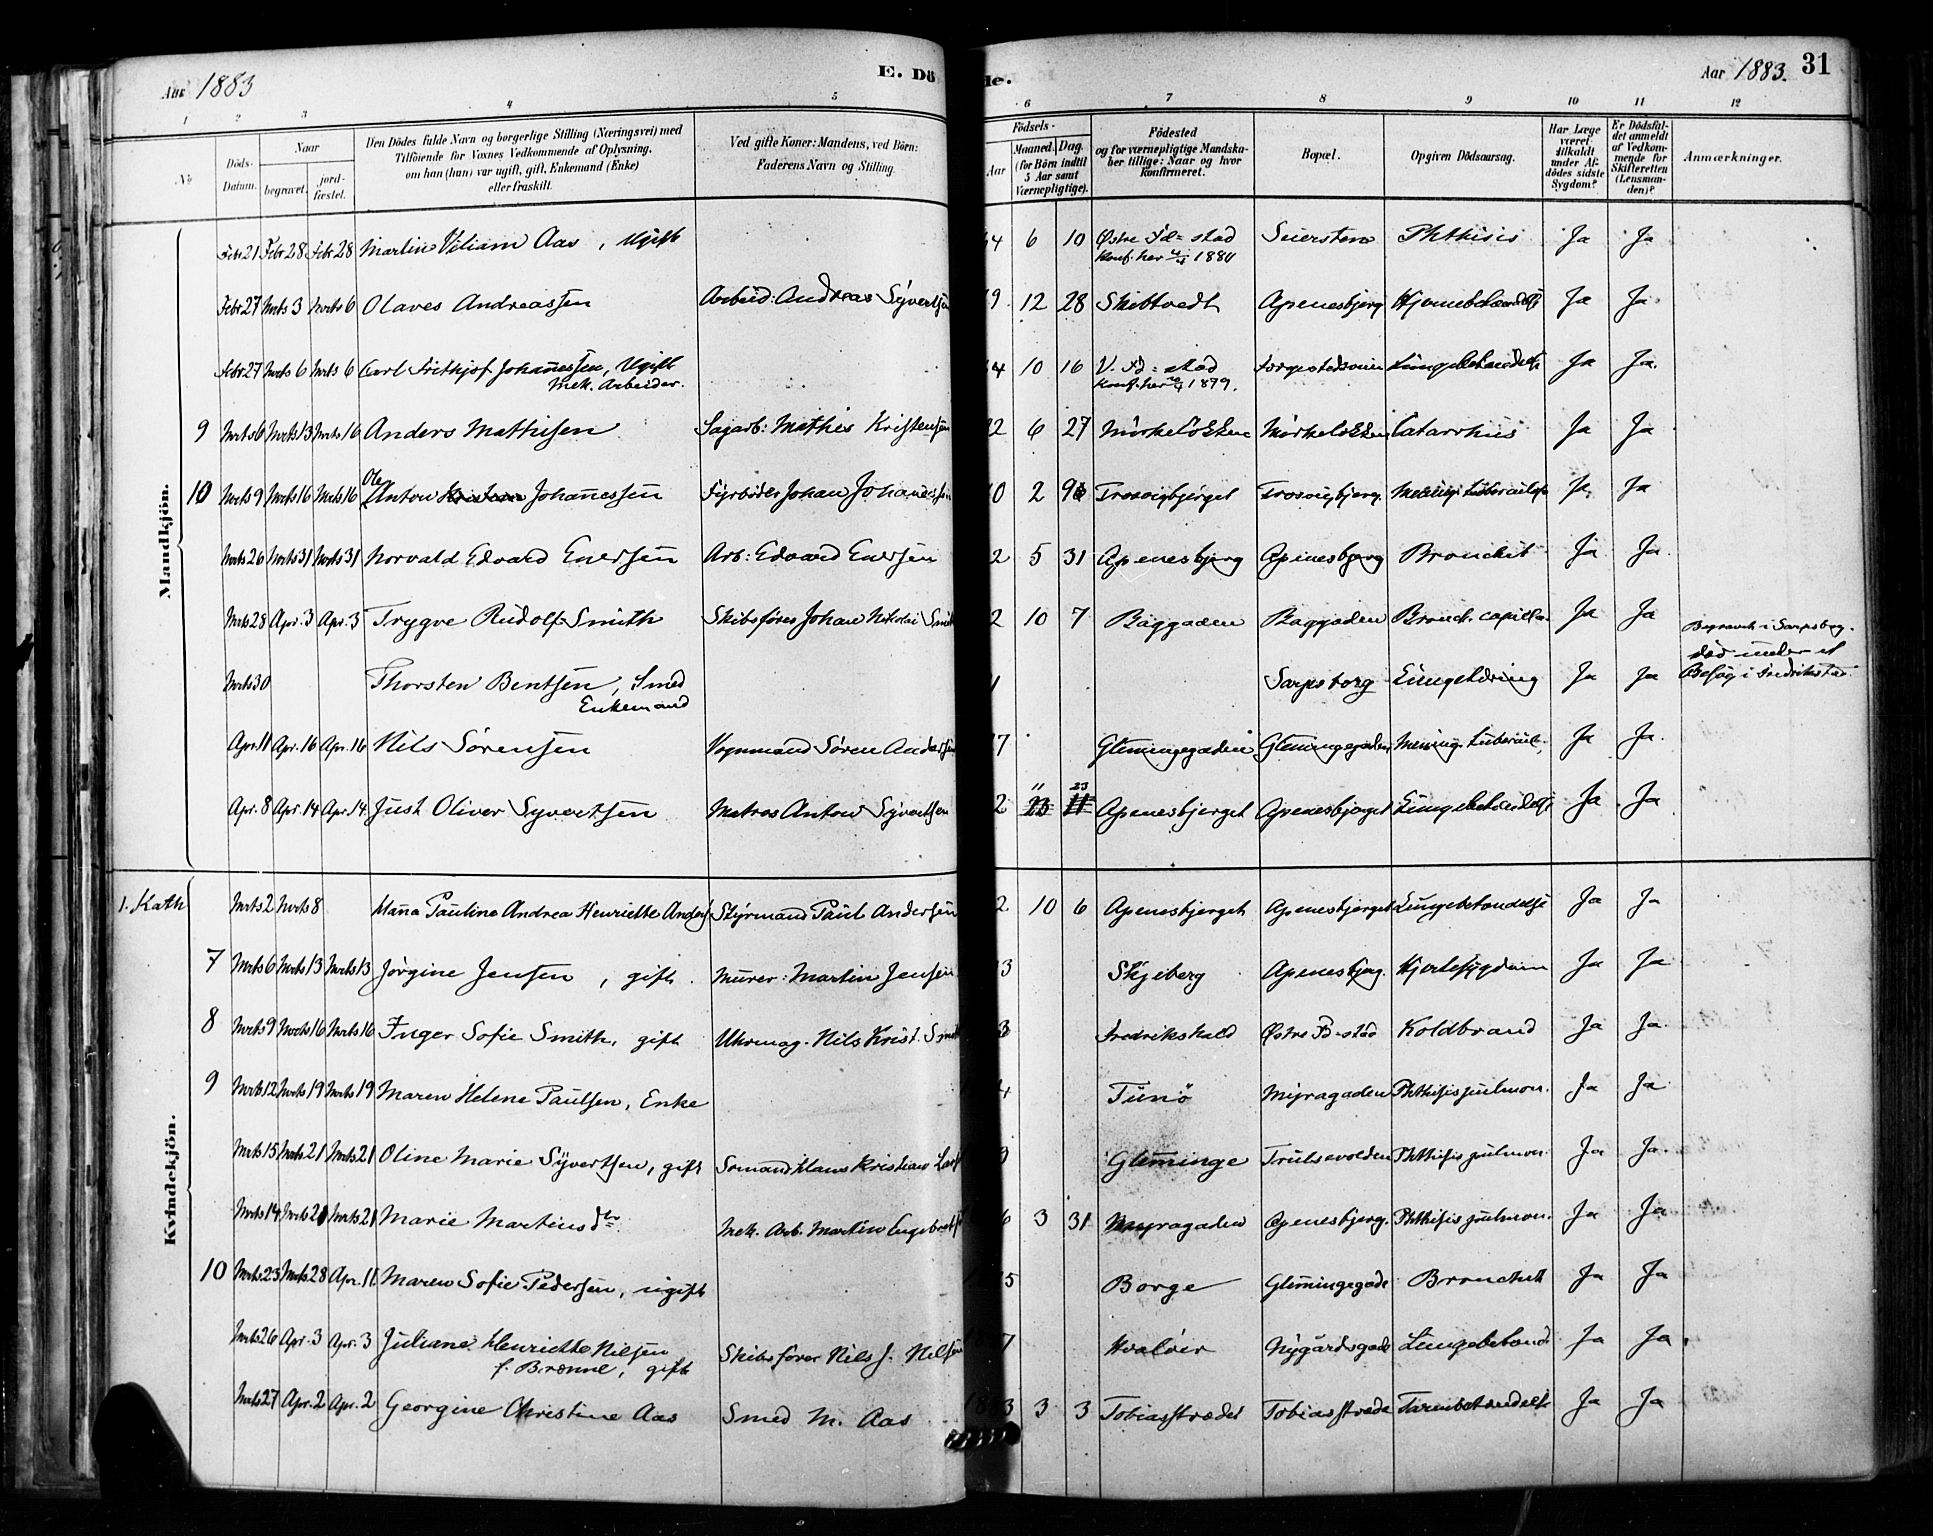 Aar 1883
E. Dö
de.
Aar 1883. 31
1 2 3 4 5 6 7 8 9 10 11 12
No
Döds-Datum.
Naar
begravet.
jord-fæstet.
Den Dödes fulde Navn og borgerlige Stilling (Næringsvei) med
Tilföiende for Voxnes Vedkommende af Oplysning,
om han (hun) var ugift, gift, Enkemand (Enke)
eller fraskilt.
Ved gifte Koner: Mandens, ved Börn:
Faderens Navn og Stilling.
Födsels-
Aar
Maaned. Dag.
(for Börn indtil
5 Aar samt
Værnepligtige).
Födested
og for værnepligtige Mandska-
ber tillige: Naar og hvor
konfirmeret.
Bopæl.
Opgiven Dödsaarsag.
Har Læge
været
tilkaldt
under Af-
dödes sidste
Sygdom?
Er Dödsfal-
det anmeldt
af Vedkom-
mende for
Skifteretten
(Lensman-
den)?
Anmærkninger.
Mandkjön.
Febr 21 Febr 28 Febr 28 Martin Viliam Aas, Ugift 4 6 10 Østre Fd=stad Seiersten Phthisis Ja Ja
Konf. her 1880
Febr 27 Mrts 3 Mrts 6 Olaves Andreassen Arbeid: Andreas Syvertsen 9 12 28 Skibtvedt Apenesbjerg Hjernebetændelse Ja Ja
Febr 27 Mrts 6 Mrts 6 Carl Frithjof Johanessen, Ugift 4 10 16 V. Fd=stad Lungebetændelse Ja Ja
Mek. Arbeider. Konf. her 1879.
9 Mrts 6 Mrts 13 Mrts 16 Anders Mathisen Sagarb: Mathis Kristensen 2 6 27 Mörkelökken Mörkelökken Catarrhus Ja Ja
10 Mrts 9 Mrts 16 Mrts 16 Ole Anton Johanessen Fyrböder Johan Johanessen 0 2 9 Trosvigbjerget Trosvigbjerg. Mening. tuberculos Ja Ja
Mrts 26 Mrts 31 Mrts 31 Norvald Edvard Enersen Arb: Edvard Enersen 2 5 31 Apenesbjerg Apenesbjerg Bronchit Ja Ja
Mrts 28 Apr. 3 Apr. 3 Trygve Rudolf Smith Skibsförer Johan Nikolai Smith 2 10 7 Baggaden Baggaden Bronch. capilla. Ja Ja
Mrts 30 Thorsten Bentsen, Smed 1 Sarpsborg Lungetæring Ja Ja Begravet i Sarpsborg.
Enkemand död under et
Besög i Fredrikstad
Apr. 11 Apr. 16 Apr. 16 Nils Sörensen Vognmand Sören Andersen 7 Glemmingegaden Glemmingegaden Mening. tubercul. Ja Ja
Apr. 8 Apr. 14 Apr. 14 Just Oliver Syvertsen Matros Anton Syvertsen 2 11 23 Apenesbjerget Apenesbjerget Lungebetændelse Ja Ja
Kvindekjön.
1. Kath Mrts 2 Mrts 8 Hana Pauline Andrea Henriette Anders Styrmand Paul Andersen 2 10 6 Apenesbjerget Apenesbjerget Lungebetændelse Ja Ja
7 Mrts 6 Mrts 13 Mrts 13 Jörgine Jensen, gift. Murer: Martin Jensen 3 Skjeberg Apenesbjerg. Hjertesygdom Ja Ja
8 Mrts 9 Mrts 16 Mrts 16 Inger Sofie Smith, gift Uhrmag. Nils Krist. Smith 3 Fredrikshald Østre Fd-stad Koldbrand Ja Ja
9 Mrts 12 Mrts 19 Mrts 19 Maren Helene Paulsen, Enke 4 Tunö Myragaden Phthisis pulmon. Ja Ja
Mrts 15 Mrts 21 Mrts 21 Oline Marie Syvertsen, gift Sömand Hans Kristian 9 Glemminge Trulsevolden Phthisis pulmon. Ja Ja
Mrts 14 Mrts 21 Mrts 21 Marie Martinsdtr Mek. Arb. Martin Engebretsen 6 3 31 Myragaden Apenesbjerg. Phthisis pulmon. Ja Ja
10 Mrts 23 Mrts 28 Apr. 11 Maren Sofie Pedersen, ugift 5 Borge Glemmingegade Bronchit Ja Ja
Mrts 26 Apr. 3 Apr. 3 Juliane Henriette Nilsen Skibsförer Nils J. Nilsen 7 Hvalöer Nygårdsgade Lungebetænd. Ja Ja
f. Brænne, gift
Mrts 27 Apr. 2 Apr. 2 Georgine Christine Aas Smed M. Aas 3 3 3 Tobiasstrædet Tobiasstræde Tarmbetændelse Ja Ja